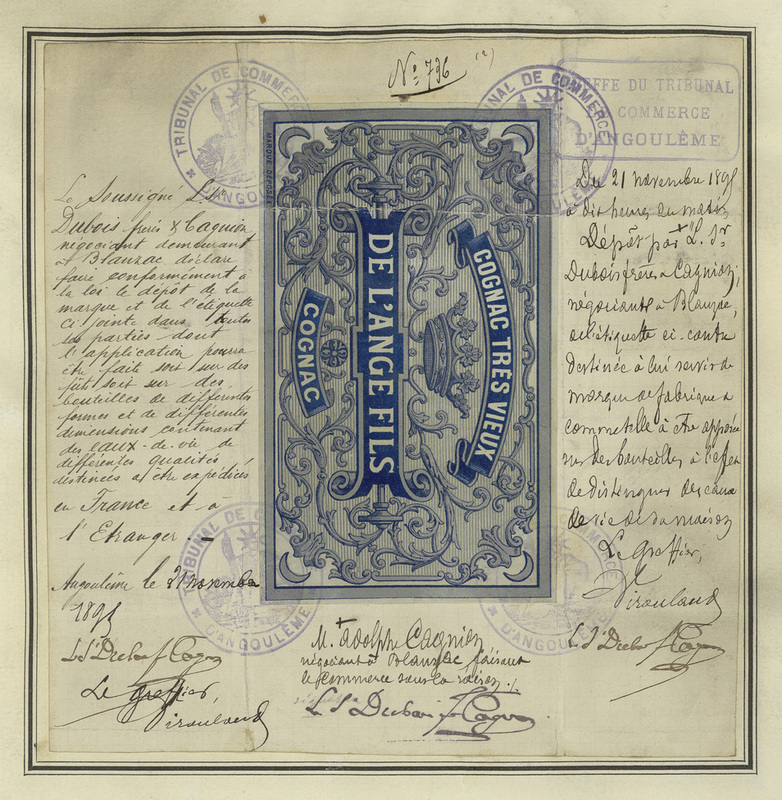 Nº 796
(2)
TRIBUNAL DE COMMERCE
D'ANGOULÊME
TRIBUNAL DE COMMERCE
D'ANGOULÊME
GREFFE DU TRIBUNAL
COMMERCE
D'ANGOULÊME
MARQUE DÉPOSÉE
COGNAC TRÈS VIEUX
DE L'ANGE FILS
COGNAC
Le Soussigné L. Sr
Dubois frères & Cagnion
négociant demeurant
à Blanzac déclare
faire conformément à
la loi le dépôt de la
marque et de l'étiquette
ci-jointe dans toutes
ses parties dont
l'application pourra
être faite soit sur des
fûts soit sur des
bouteilles de différentes
formes et de différentes
dimensions contenant
des eaux-de-vie de
différentes qualités
destinées à être expédiées
en France et à
l'Etranger.
Angoulême le 21 novembre
189
L. Sr Dubois f Cagnion
Le Greffier,
Du 21 novembre 189
à dix heures du matin
Dépôt par L. Sr
Dubois frères & Cagnion,
négociants à Blanzac,
de l'étiquette ci-contre
destinée à lui servir de
marque de fabrique &
commerce à être apposée
sur des bouteilles à l'effet
de distinguer des eaux
de vie de sa maison
Le Greffier,
L. Sr Dubois f Cagnion
M. Adolphe Cagnion
négociant à Blanzac faisant
le commerce sous la raison :
L. Sr Dubois f Cagnion
TRIBUNAL DE CO
D'ANGOULÊME
D'ANGOULÊME